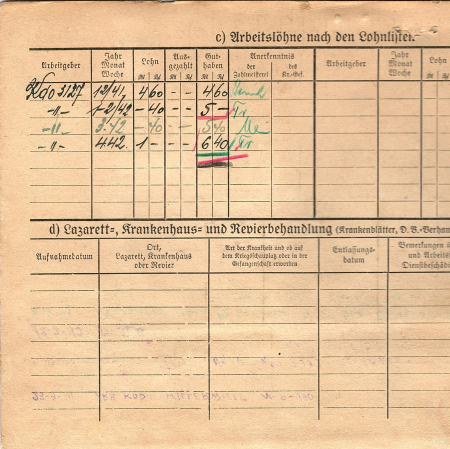 c) Arbeitslöhne nach den Lohnlisten.
Arbeitgeber Jahr Monat Woche Lohn Ausgezahlt Guthaben Anerkenntnis der Zahlmeisterei des Kr.-Gef. Arbeitgeber Jahr Monat Woche Lohn
Kdo 3127 12/41 4 60 - - 4 60
-"- 1-2/42 - 40 - - 5 - Fr
-"- 3.42 - 40 - - 5 40
-"- 4.42. 1 - - - 6 40 Fr
d) Lazarett-, Krankenhaus- und Revierbehandlung (Krankenblätter, D. B.-Verhan
Aufnahmedatum Ort, Lazarett, Krankenhaus oder Revier Art der Krankheit und ob auf dem Kriegsschauplatz oder in der Gefangenschaft erworben Entlassungsdatum Bemerkungen und Arbeits Dienstbeschädi